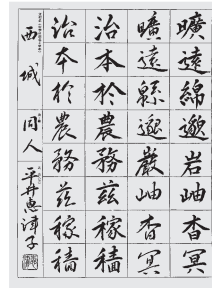 曠遠綿邈岩岫杳冥
曠遠緜邈巖岫杳冥
治本於農務茲稼穡
治本於農務茲稼穡
西城 同人 平井恵津子